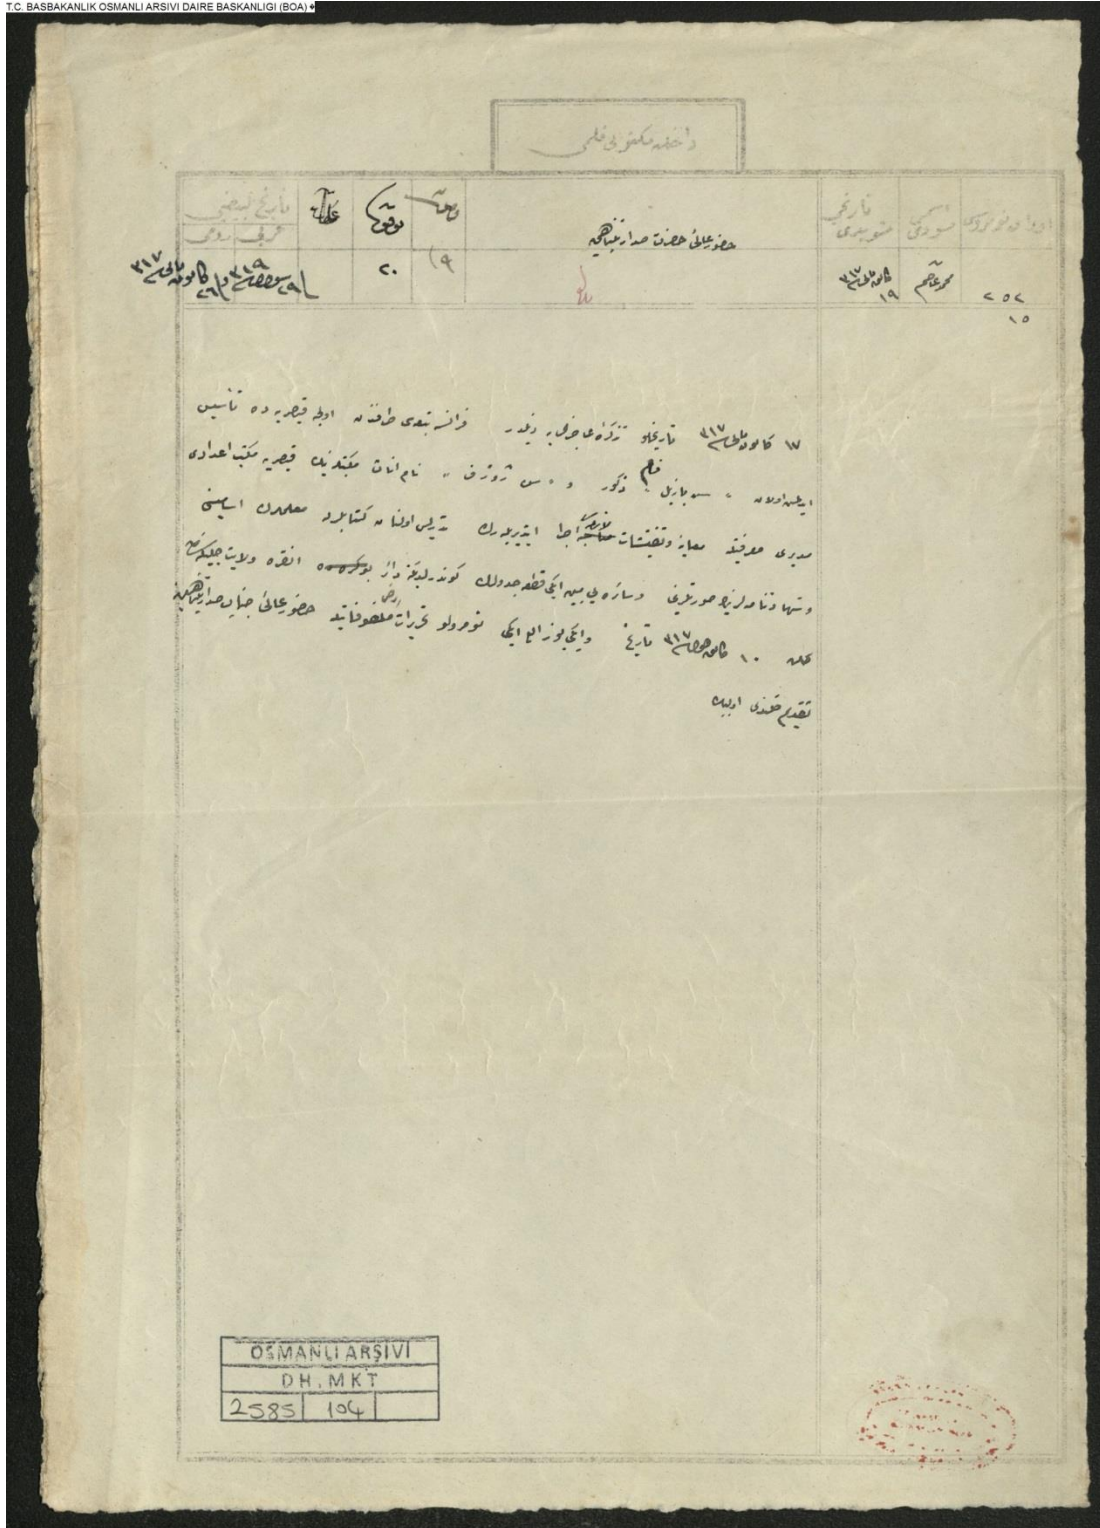 T.C. BASBAKANLIK OSMANLI ARSIVI DAIRE BASKANLIGI (BOA)
داخليه مكتوبى قلمى
اوراق نومروسى
مسودى
تاريخ تسويدى
حضور عالئ حضرت صدارتپناهى
تاريخ تبييضى
عربى
رومى
٢٥٢
١٥
١٩
٢٠
١٧ كانون ثانى ٣١٧ تاريخلو تذكرهٔ عاجزانه‌يه ذيلدر فرانسه تبعه‌سى طرفندن اولجه قيصريه ده تأسيس
ايدلمش اولان سن بازيل ذكور و سن ژوزف نام اناث مكتبلرينك قيصريه مكتب اعدادى
مديرى معرفتيله معاينه و تفتيشات لازمه اجرا ايتديريله‌رك تدريس اولنان كتابلرله معلملرك اساميسنى
و شهادتنامه‌لرينك صورتلرينى و سائره‌يى مبين ايكى قطعه جدولك كوندرلديكنه دائر انقره ولايت جليله‌سندن
آلنان ١٠ كانون ٣١٧ تاريخ و ايكى يوز اللى ايكى نومرولو تحريرات ملفوفاتيله حضور عالئ جناب صدارتپناهيلرينه
تقديم قلندى اولبابده
OSMANLI ARŞIVI
DH.MKT
2585 104